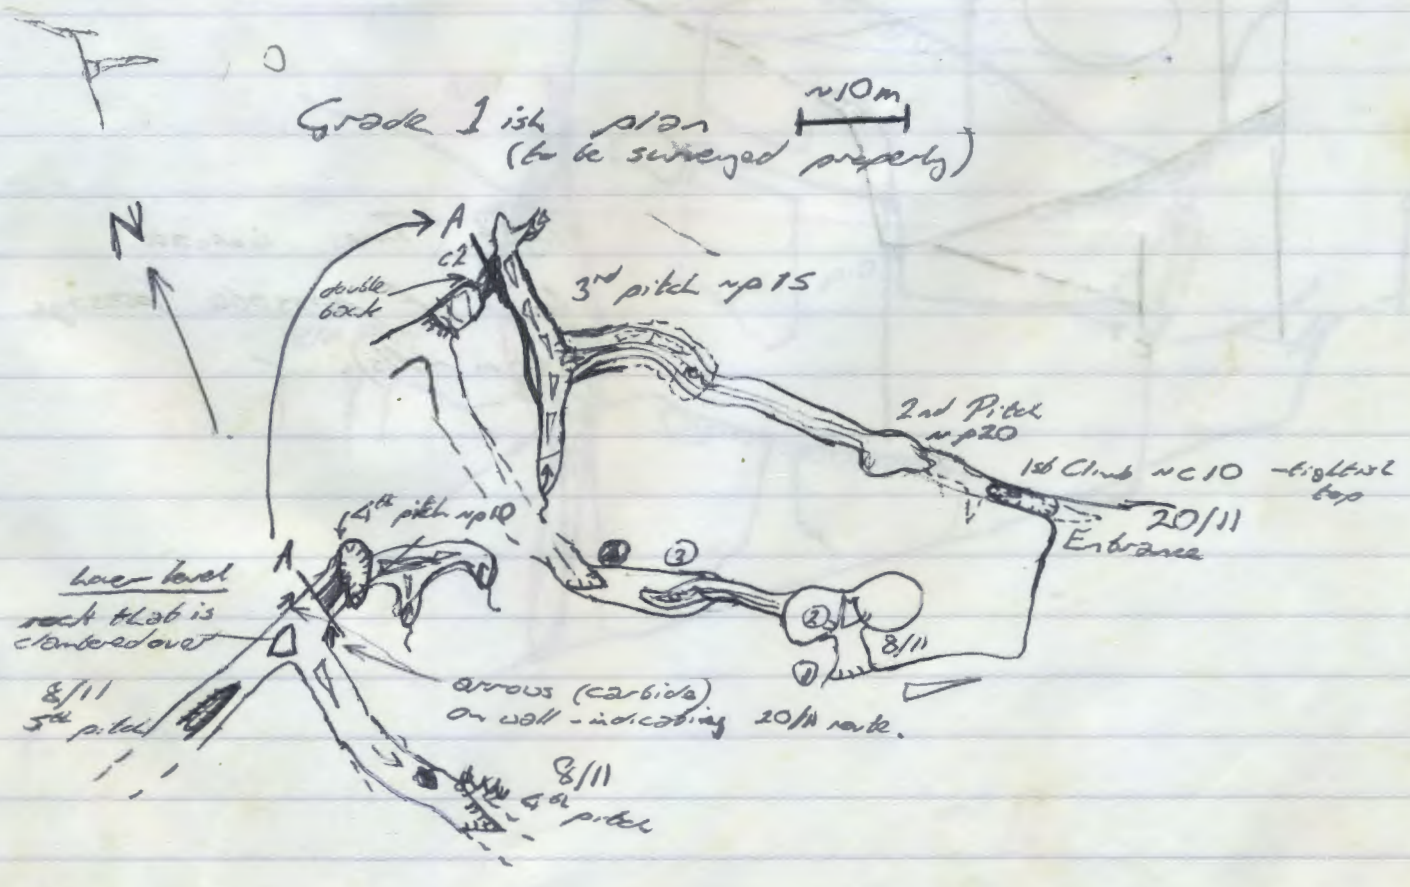 Grade 1 ish plan
~10m
(to be surveyed properly)
N
A
c2
double
back
3rd pitch ~p15
2nd Pitch
~p20
1st Climb ~c10 - tightish
top
20/11
Entrance
4th pitch ~p10
A
Lower level
rock that is
clambered over
3
2
8/11
1
8/11
5th pitch
arrows (carbide)
on wall - indicating 20/11 route.
8/11
4th
pitch